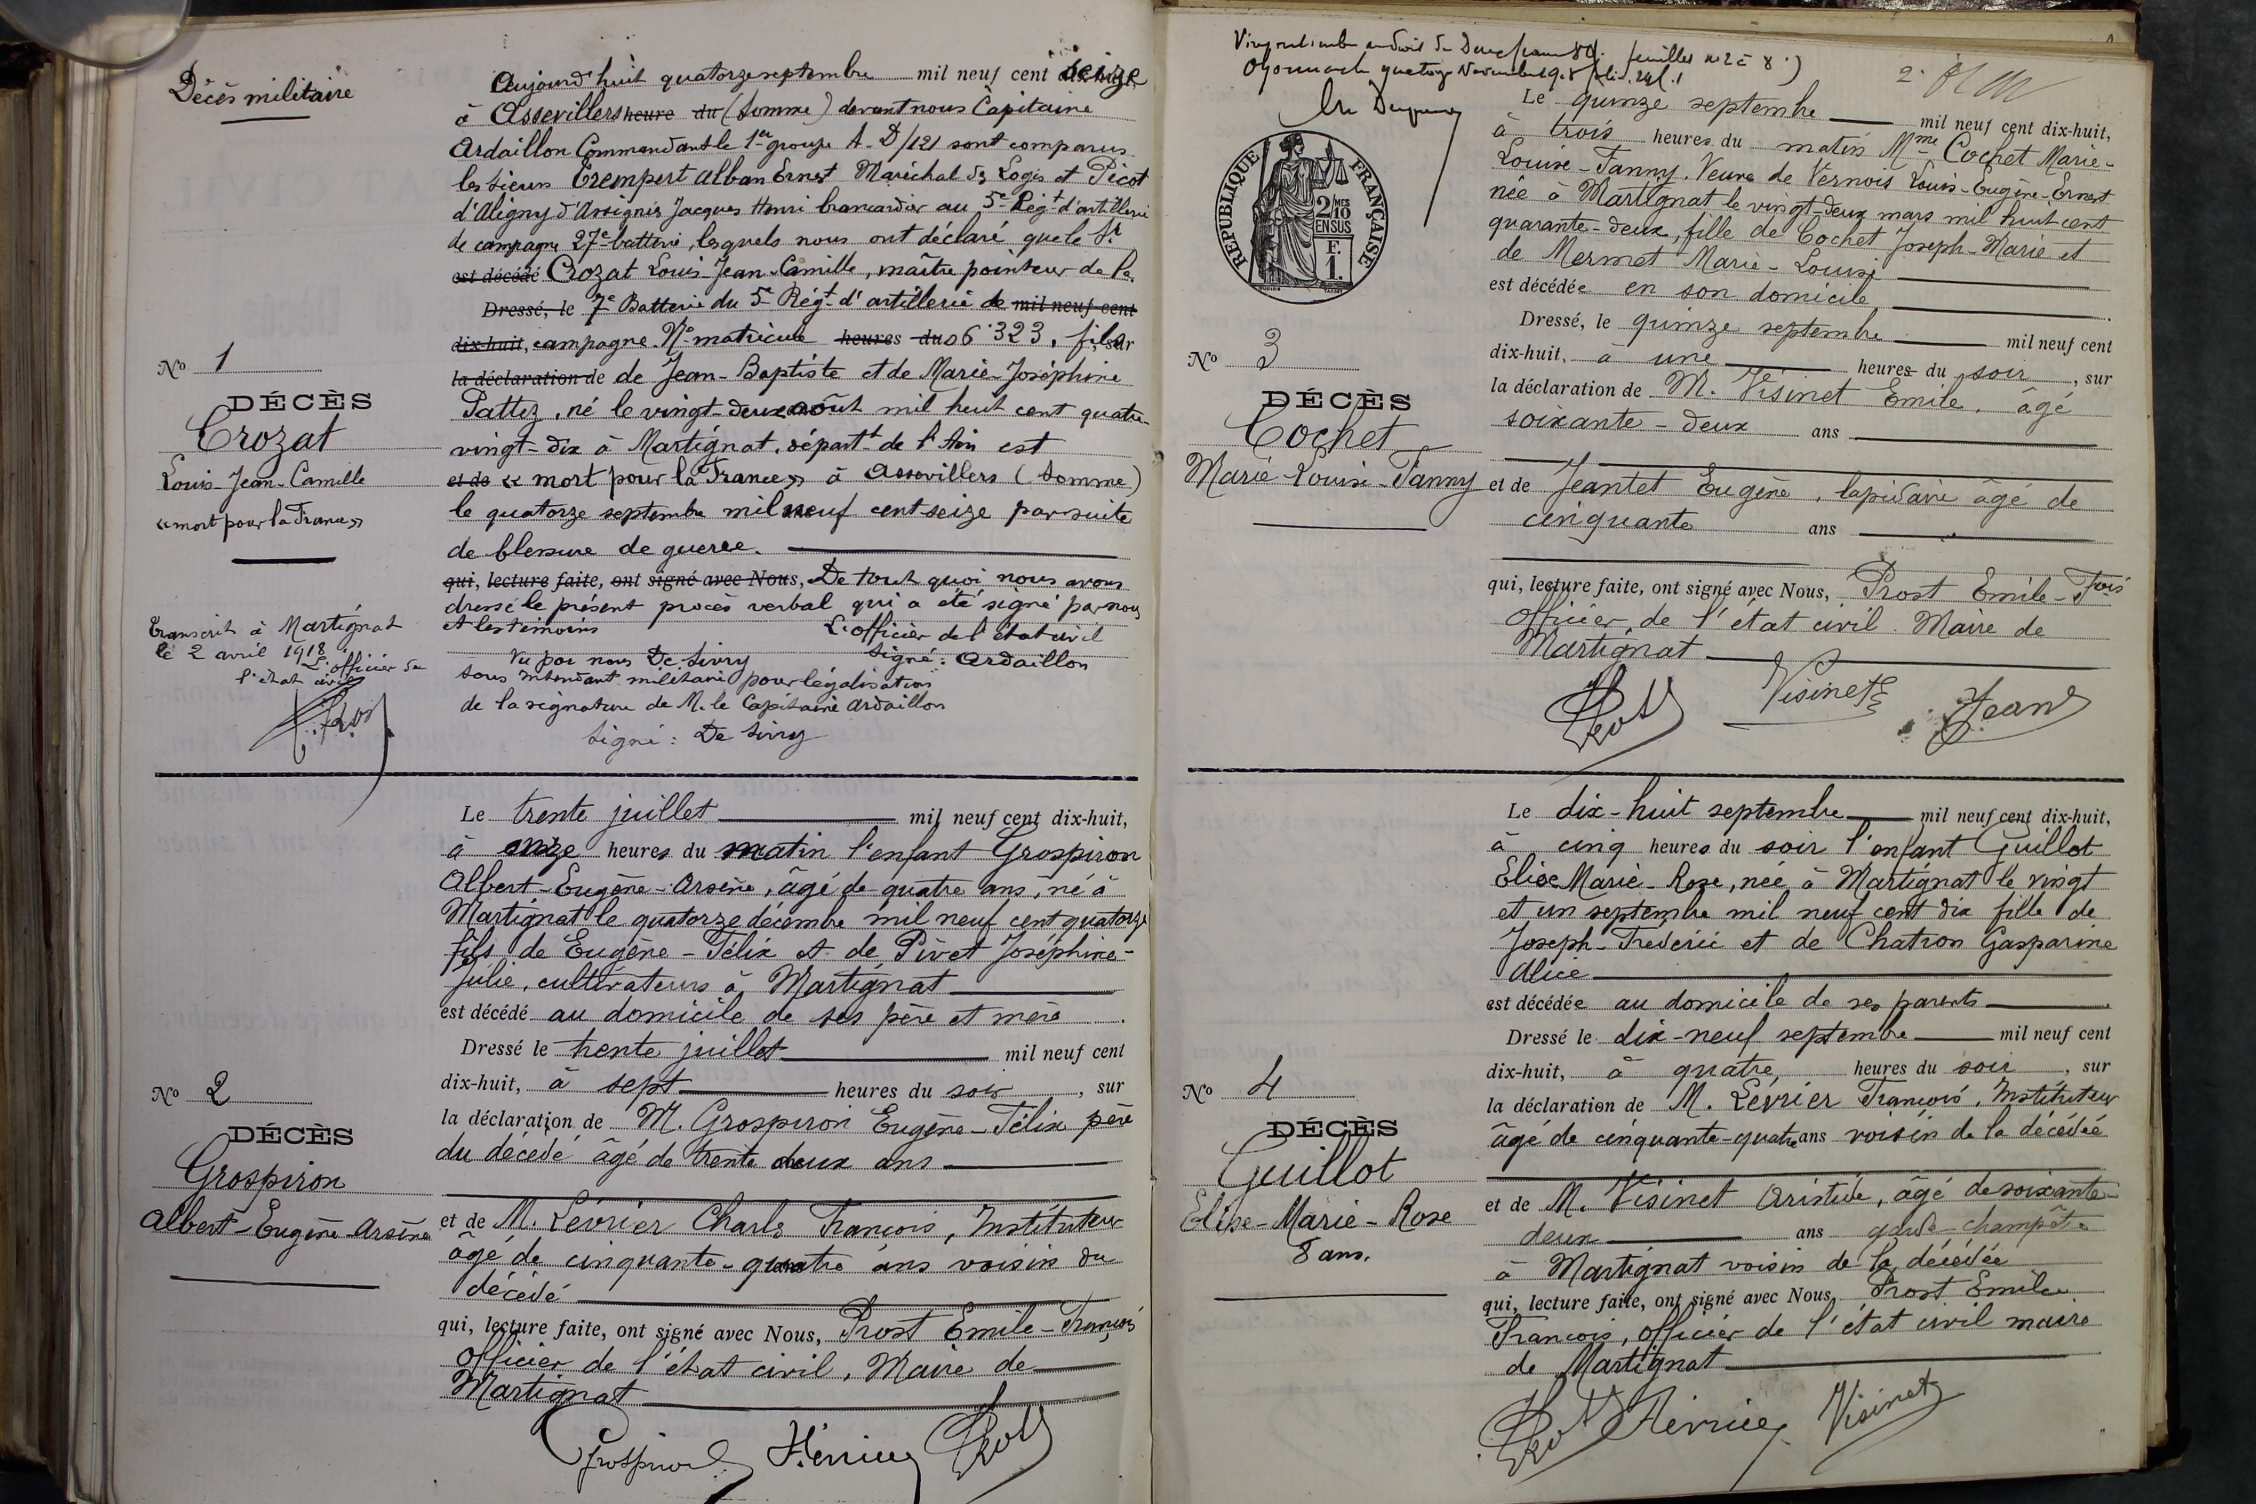 Décès militaire
Aujourd'huit quatorze septembre mil neuf cent seize
à Assevillers heure du (Somme) devant nous Capitaine
Ardaillon Commandant le 1er groupe A.D/121 sont comparus
les sieurs Trempert Alban Ernest Maréchal des Logis et Picot
d'Aligny d'Assignis Jacques Henri brancardier au 5e Régt d'artillerie
de campagne 27e batterie, lesquels nous ont déclaré que le St
est décédé Crozat Louis-Jean-Camille, maître pointeur de la
Dressé, le 7e Batterie du 5e Régt d'artillerie de mil neuf cent
dix-huit, campagne No matricule heures du 06323, fils sur
la déclaration de de Jean-Baptiste et de Marie-Joséphine
Pattez, né le vingt-deux août mil huit cent quatre-
vingt-dix à Martignat, départt de l'Ain est
et de « mort pour la France » à Assevillers (Somme)
le quatorze septembre mil neuf cent seize par suite
de blessure de guerre.
qui, lecture faite, ont signé avec Nous, De tout quoi nous avons
dressé le présent procès verbal qui a été signé par nous
et les témoins L'officier de l'état civil
Vu par nous De Sivry Signé: Ardaillon
sous intendant militaire pour légalisation
de la signature de M. le Capitaine Ardaillon
Signé: De Sivry
No 1
DÉCÈS
Crozat
Louis-Jean-Camille
« mort pour la France »
Transcrit à Martignat
le 2 avril 1918
L'officier de
l'état civil
Le trente juillet mil neuf cent dix-huit,
à onze heures du matin l'enfant Grospiron
Albert-Eugène-Arsène, âgé de quatre ans, né à
Martignat le quatorze décembre mil neuf cent quatorze
fils de Eugène-Félix et de Pivet Joséphine-
Julie, cultivateurs à Martignat
est décédé au domicile de ses père et mère
Dressé le trente juillet mil neuf cent
dix-huit, à sept heures du soir, sur
la déclaration de M. Grospiron Eugène-Félix père
du décédé âgé de trente deux ans
et de M. Lévrier Charles François, Instituteur
âgé de cinquante-quatre ans voisin du
décédé
qui, lecture faite, ont signé avec Nous, Prost Emile-François
officier de l'état civil, Maire de
Martignat
No 2
DÉCÈS
Grospiron
Albert-Eugène-Arsène
2.
RÉPUBLIQUE FRANÇAISE
2/MES
10
EN SUS
F.
1.
Le quinze septembre mil neuf cent dix-huit,
à trois heures du matin Mme Cochet Marie-
Louise-Fanny, Veuve de Vernois Louis-Eugène-Ernest
née à Martignat le vingt-deux mars mil huit cent
quarante-deux, fille de Cochet Joseph-Marie et
de Mermet Marie-Louise
est décédée en son domicile
Dressé, le quinze septembre mil neuf cent
dix-huit, à une heures du soir, sur
la déclaration de M. Visinet Emile, âgé
soixante-deux ans
et de Jeantet Eugène, lapidaire âgé de
cinquante ans
qui, lecture faite, ont signé avec Nous, Prost Emile-Fois
officier de l'état civil. Maire de
Martignat
Visinet
No 3
DÉCÈS
Cochet
Marie-Louise-Fanny
Le dix-huit septembre mil neuf cent dix-huit,
à cinq heures du soir l'enfant Guillot
Elise Marie-Rose, née à Martignat le vingt
et un septembre mil neuf cent dix fille de
Joseph-Fréderic et de Chatron Gasparine
Alice
est décédée au domicile de ses parents
Dressé le dix-neuf septembre mil neuf cent
dix-huit, à quatre heures du soir, sur
la déclaration de M. Lévrier François, Instituteur
âgé de cinquante-quatre ans voisin de la décédée
et de M. Visinet Aristide, âgé de soixante-
deux ans garde-champêtre
à Martignat voisin de la décédée
qui, lecture faite, ont signé avec Nous, Prost Emile
François, officier de l'état civil maire
de Martignat
Visinet
No 4
DÉCÈS
Guillot
Elise-Marie-Rose
8 ans.